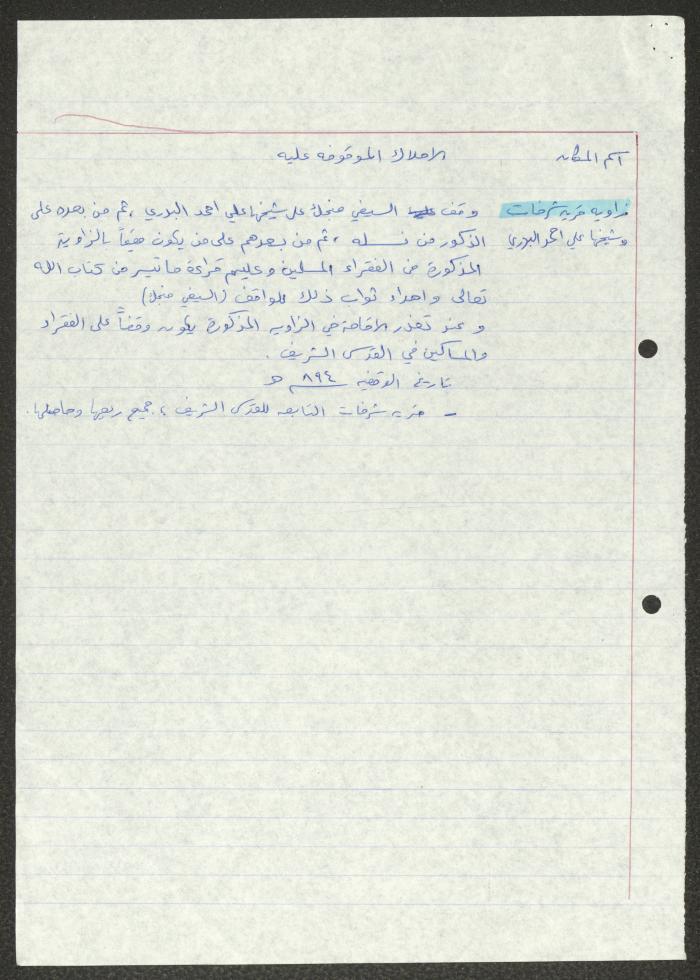 اسم المكان الاملاك الموقوفه عليه
زاويه قريه شرفات وقف السيفي منجك على شيخها علي احمد البدري ، ثم من بعده على
وشيخها علي احمد البدري الذكور من نسله ، ثم من بعدهم على من يكون مقيماً بالزاوية
المذكورة من الفقراء المسلمين وعليهم قراءة ما تيسر من كتاب الله
تعالى واهداء ثواب ذلك للواقف (السيفي منجك)
و عند تعذر الاقامة في الزاويه المذكورة يكون وقفاً على الفقراء
والمساكين في القدس الشريف .
تاريخ الوقفيه ٨٩٤ هـ
- قريه شرفات التابعه للقدس الشريف ، جميع ريعها وحاصلها .